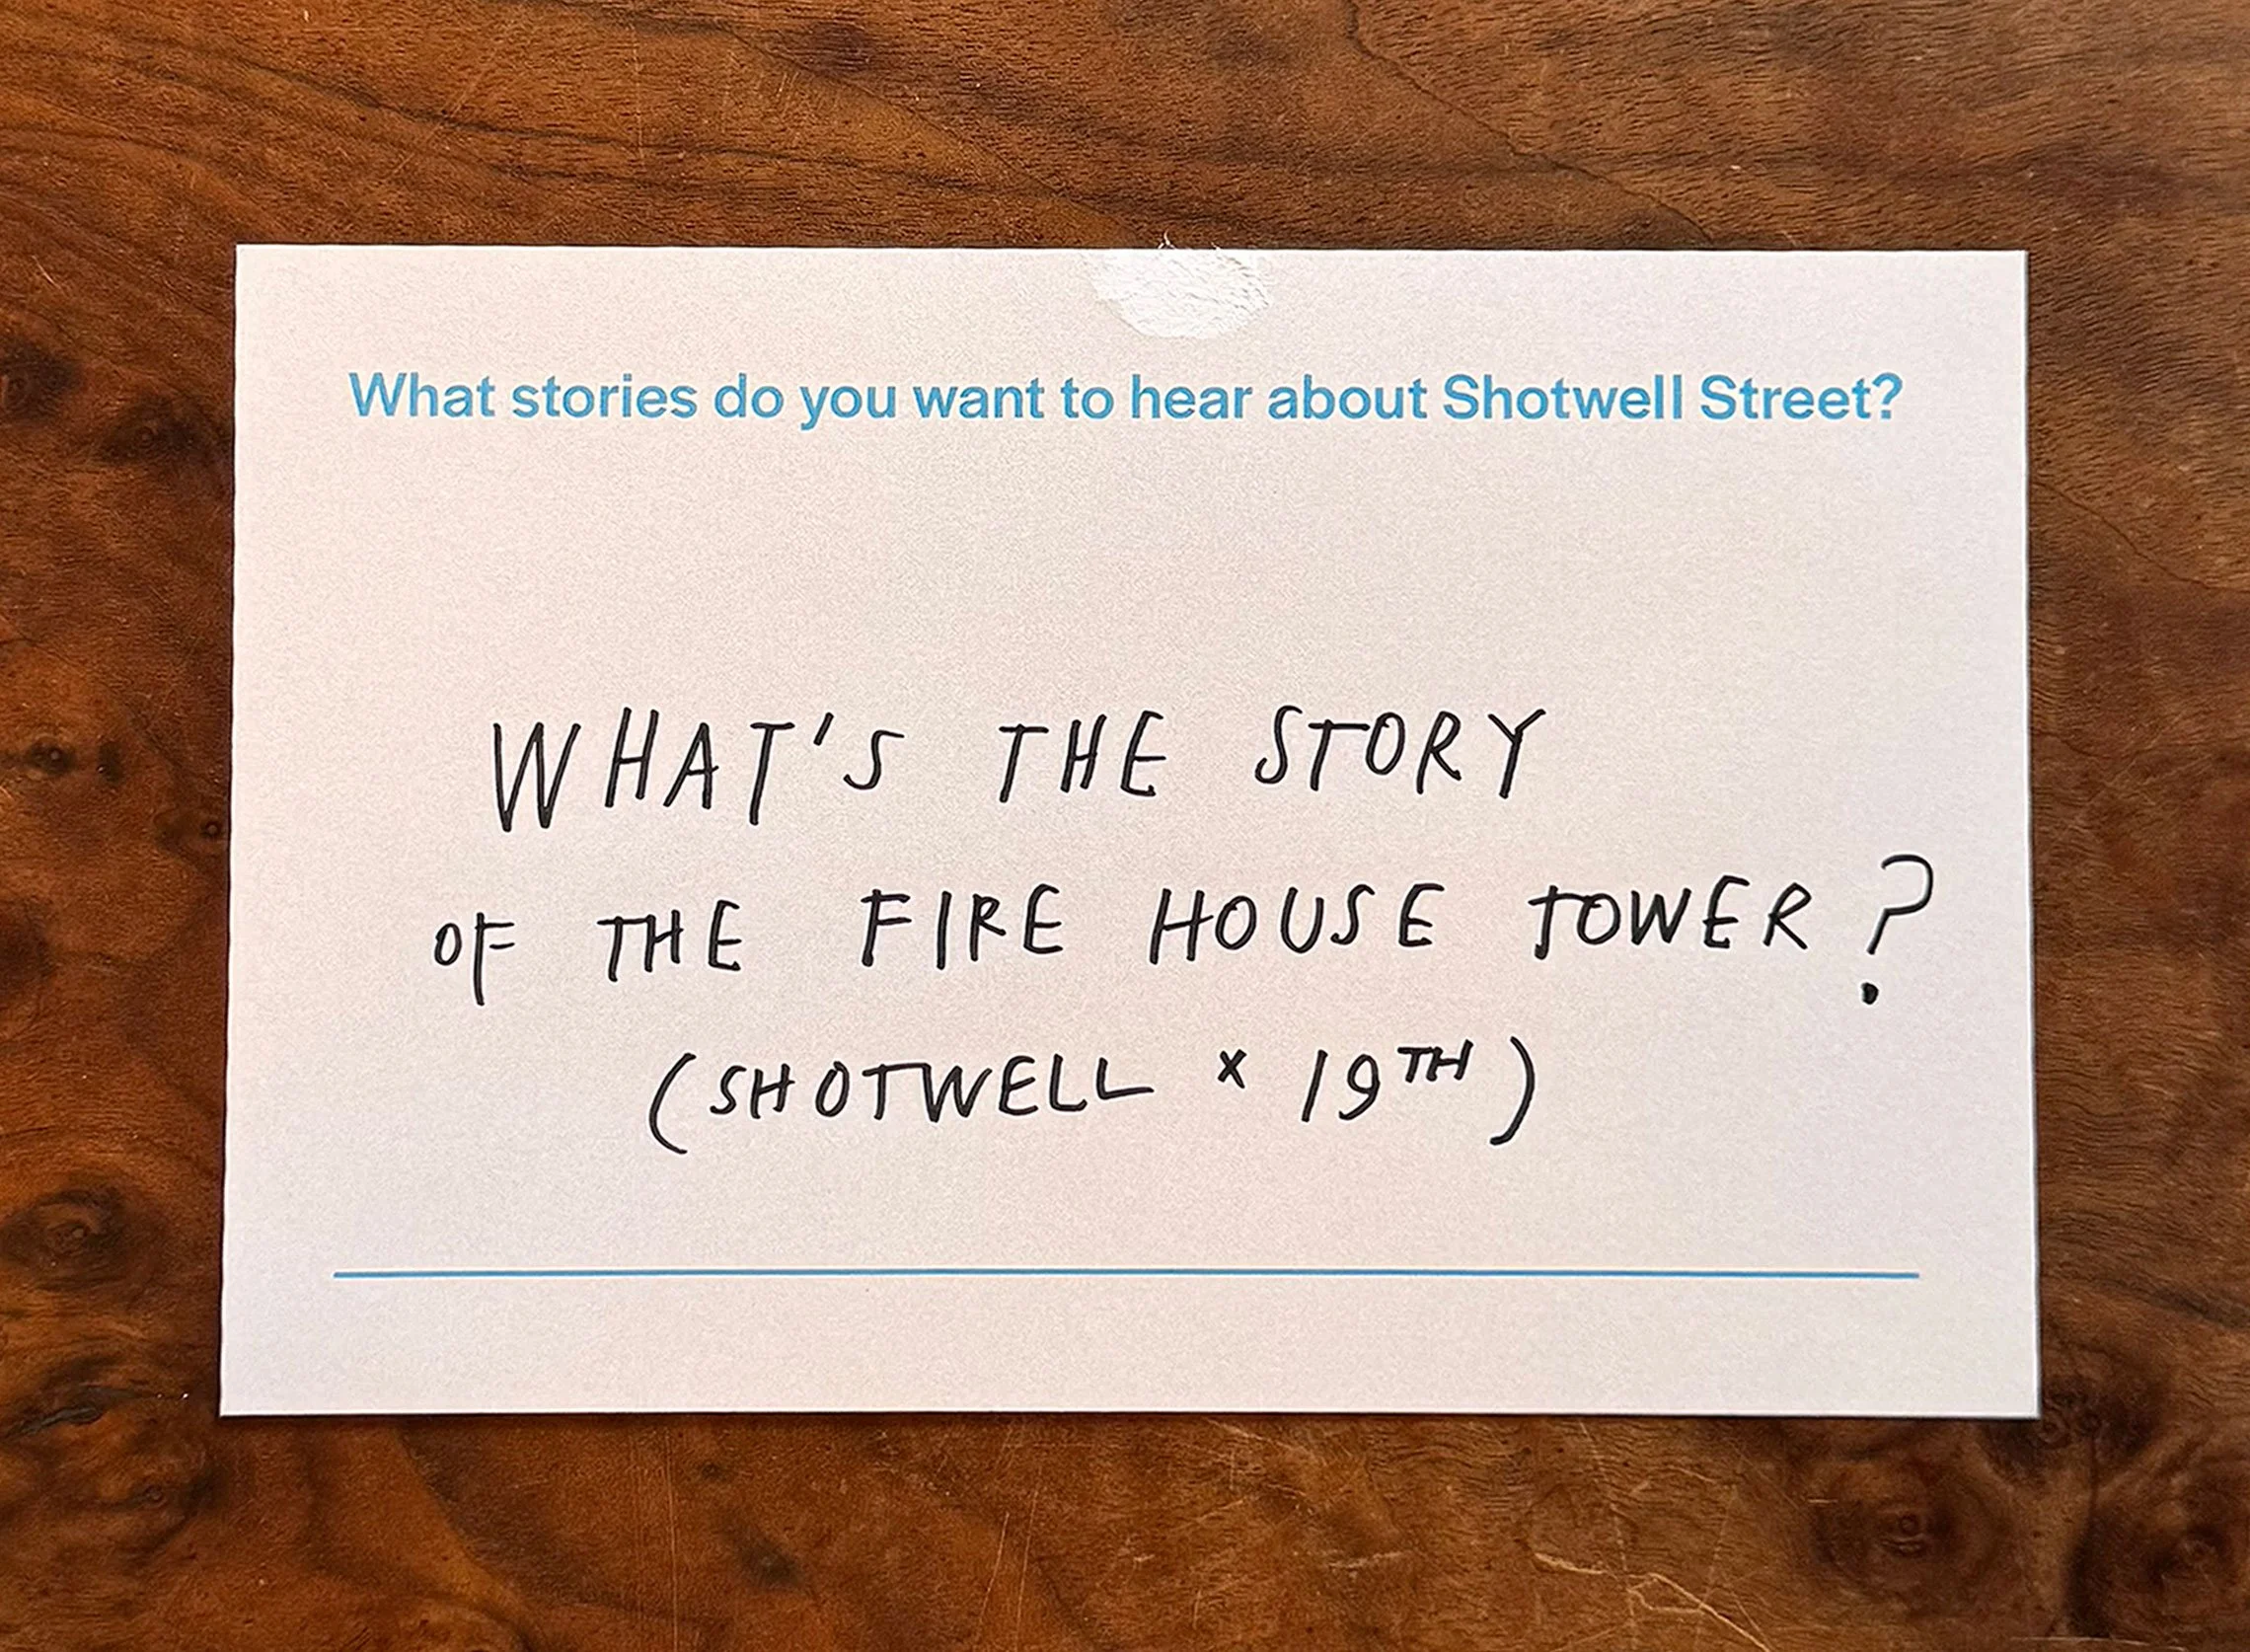 What stories do you want to hear about Shotwell Street?
WHAT'S THE STORY
OF THE FIRE HOUSE TOWER?
(SHOTWELL × 19TH)